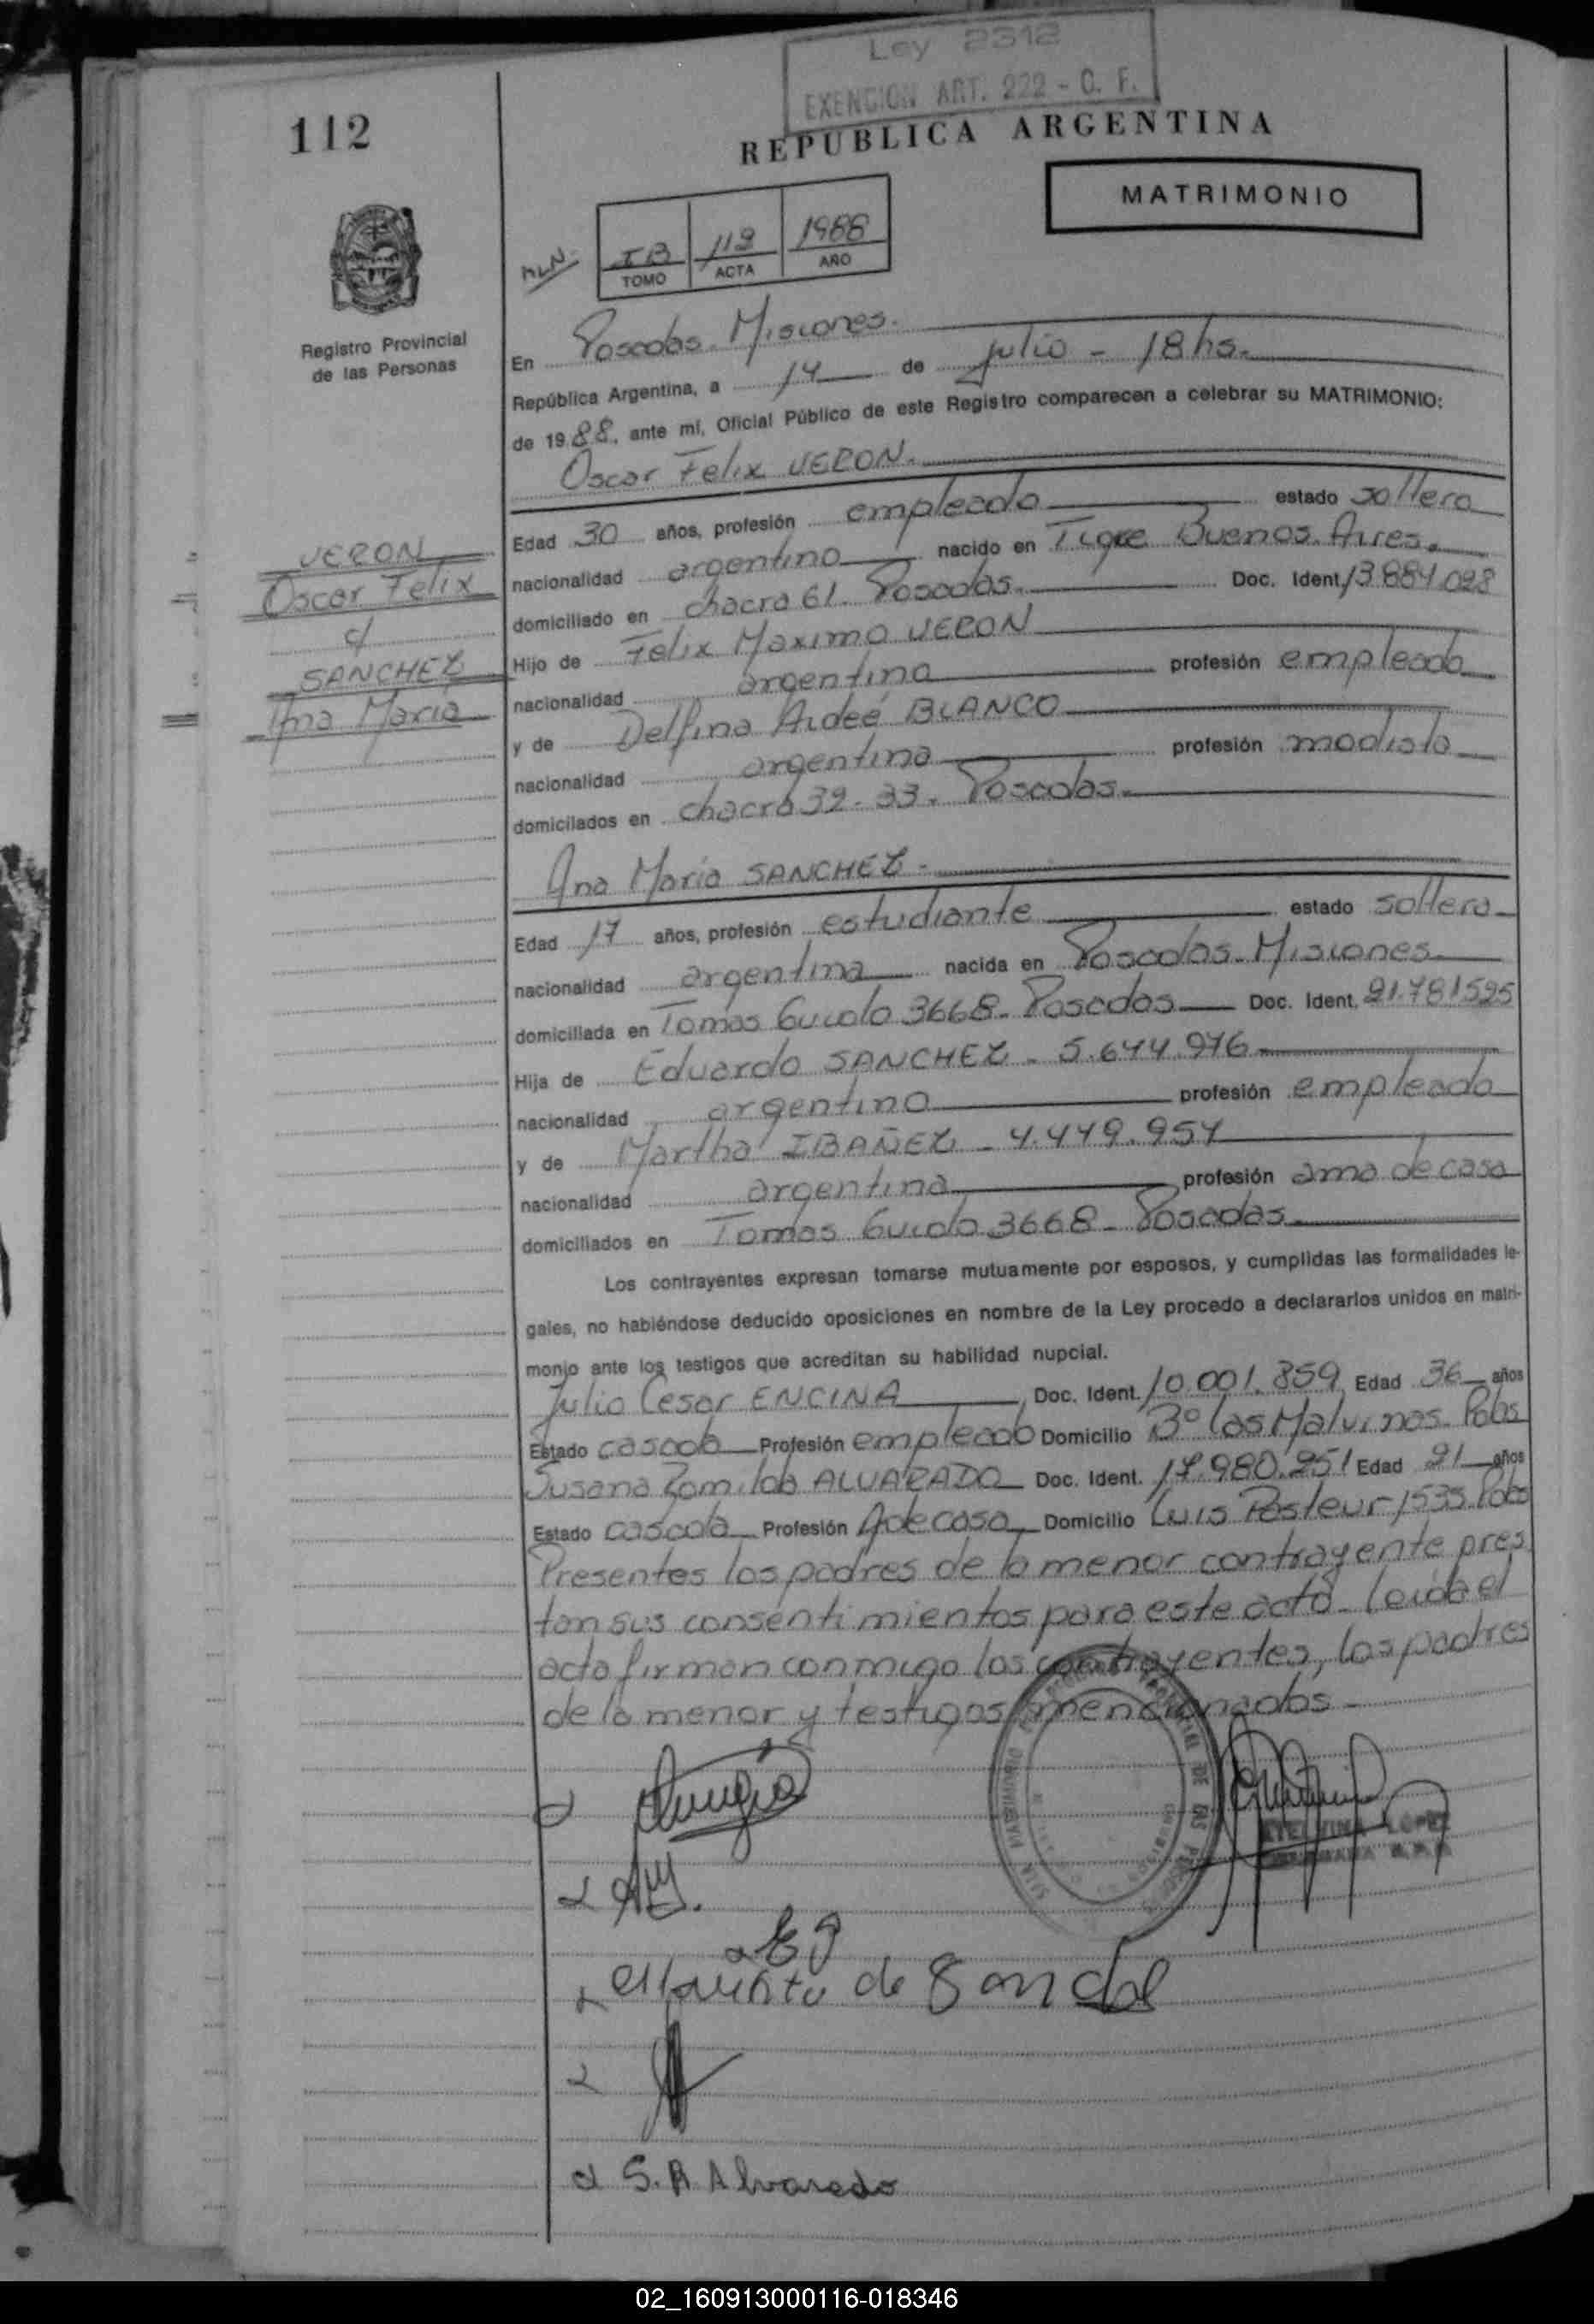 Ley 2312
EXENCION ART. 222 - C. F.
112
REPUBLICA ARGENTINA
MATRIMONIO
IB 112 1988
TOMO ACTA AÑO
Registro Provincial
de las Personas
En Posadas. Misiones.
República Argentina, a 14 de julio - 18 hs.
de 1988, ante mí, Oficial Público de este Registro comparecen a celebrar su MATRIMONIO:
Oscar Felix VERON.
Edad 30 años, profesión empleado estado soltero
nacionalidad argentino nacido en Tigre Buenos Aires.
domiciliado en chacra 61. Posadas. Doc. Ident. 13.884.028
Hijo de Felix Maximo VERON
nacionalidad argentino profesión empleado
y de Delfina Aideé BLANCO
nacionalidad argentina profesión modista
domicilados en chacra 32-33. Posadas.
VERON
Oscar Felix
c/
SANCHEZ
Ana Maria
Ana Maria SANCHEZ -
Edad 17 años, profesión estudiante estado soltera
nacionalidad argentina nacida en Posadas. Misiones.
domiciliada en Tomas Guido 3668. Posadas Doc. Ident. 21.781595
Hija de Eduardo SANCHEZ - 5.644.976
nacionalidad argentino profesión empleado
y de Martha IBAÑEZ - 4.449.954
nacionalidad argentina profesión ama de casa
domiciliados en Tomas Guido 3668 - Posadas.
Los contrayentes expresan tomarse mutuamente por esposos, y cumplidas las formalidades le-
gales, no habiéndose deducido oposiciones en nombre de la Ley procedo a declararlos unidos en matri-
monio ante los testigos que acreditan su habilidad nupcial.
Julio Cesar ENCINA Doc. Ident. 10.001.859 Edad 36 años
Estado casado Profesión empleado Domicilio Bº las Malvinas. Pdas
Susana Romilda ALVARADO Doc. Ident. 17.980.251 Edad 21 años
Estado casada Profesión A de casa Domicilio Luis Pasteur 1535. Pdas
Presentes los padres de la menor contrayente pres
tan sus consentimientos para este acto. Leida el
acta firman conmigo los contrayentes, los padres
de la menor y testigos mencionados -
ETELVINA LOPEZ
E S
de Sanchez
S. R Alvaredo
02_160913000116-018346